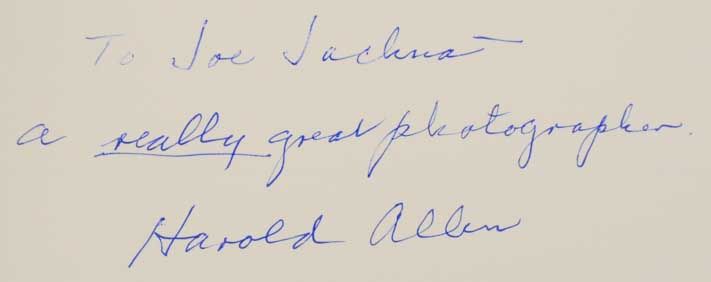 To Joe Jachna —
a really great photographer.
Harold Allen